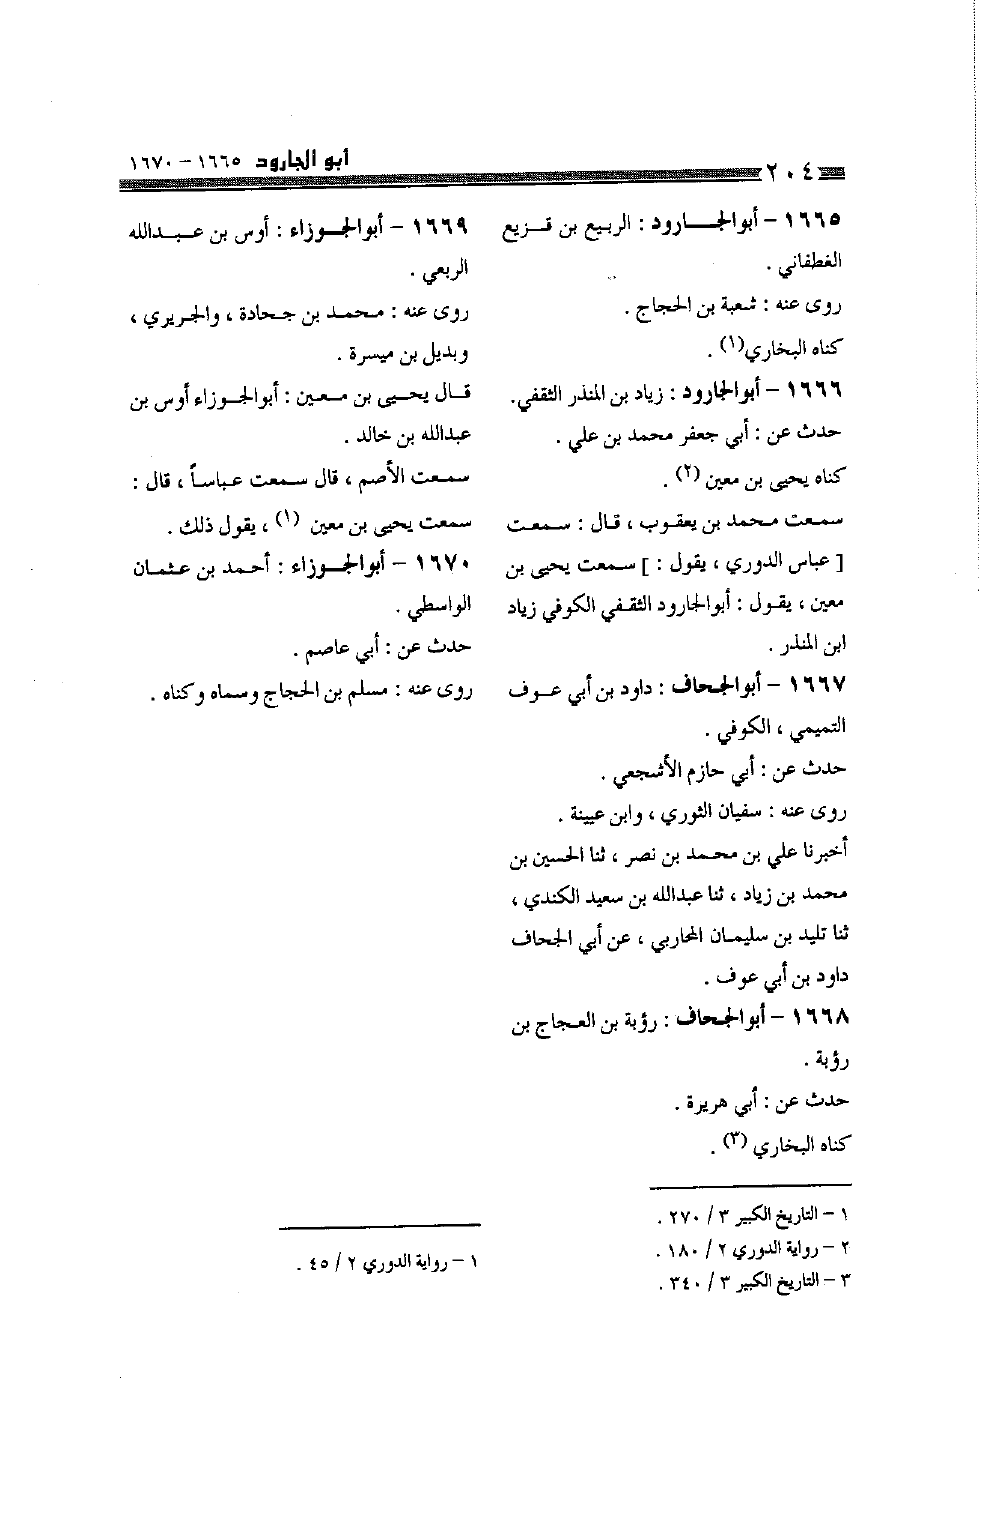 ٢٠٤
أبو الجارود ١٦٦٥ - ١٦٧٠
١٦٦٥ - أبوالجارود : الربيع بن قزيع
الغطفاني .
روى عنه : شعبة بن الحجاج .
كناه البخاري(١) .
١٦٦٦ - أبوالجارود : زياد بن المنذر الثقفي.
حدث عن : أبي جعفر محمد بن علي .
كناه يحيى بن معين (٢) .
سمعت محمد بن يعقوب ، قال : سمعت
[ عباس الدوري ، يقول : ] سمعت يحيى بن
معين ، يقول : أبوالجارود الثقفي الكوفي زياد
ابن المنذر .
١٦٦٧ - أبوالجحاف : داود بن أبي عوف
التميمي ، الكوفي .
حدث عن : أبي حازم الأشجعي .
روى عنه : سفيان الثوري ، وابن عيينة .
أخبرنا علي بن محمد بن نصر ، ثنا الحسين بن
محمد بن زياد ، ثنا عبدالله بن سعيد الكندي ،
ثنا تليد بن سليمان المحاربي ، عن أبي الجحاف
داود بن أبي عوف .
١٦٦٨ - أبوالجحاف : رؤبة بن العجاج بن
رؤبة .
حدث عن : أبي هريرة .
كناه البخاري (٣) .
١ - التاريخ الكبير ٣ / ٢٧٠ .
٢ - رواية الدوري ٢ / ١٨٠ .
٣ - التاريخ الكبير ٣ / ٣٤٠ .
١٦٦٩ - أبوالجوزاء : أوس بن عبدالله
الربعي .
روى عنه : محمد بن جحادة ، والجريري ،
وبديل بن ميسرة .
قال يحيى بن معين : أبوالجوزاء أوس بن
عبدالله بن خالد .
سمعت الأصم ، قال سمعت عباساً ، قال :
سمعت يحيى بن معين (١) ، يقول ذلك .
١٦٧٠ - أبوالجوزاء : أحمد بن عثمان
الواسطي .
حدث عن : أبي عاصم .
روى عنه : مسلم بن الحجاج وسماه وكناه .
١ - رواية الدوري ٢ / ٤٥ .